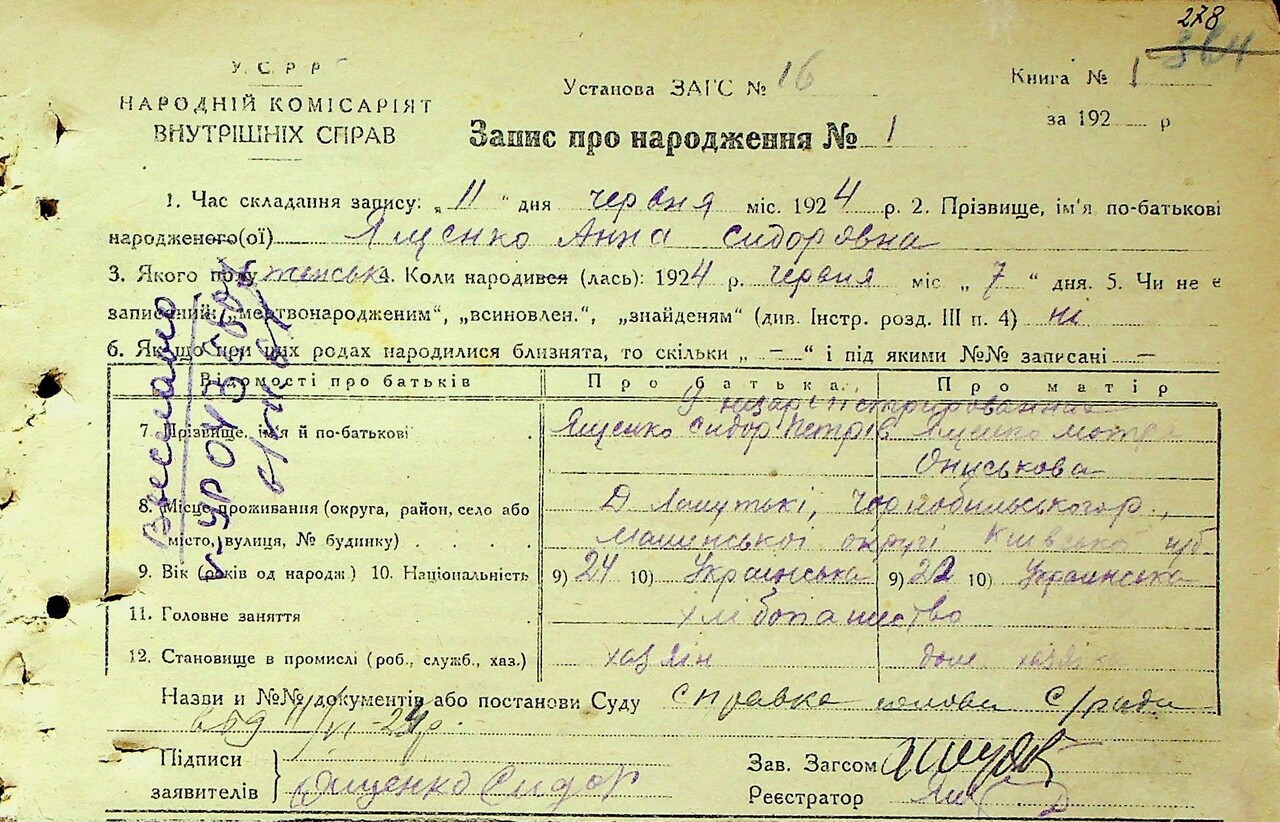 278
364
У.С.Р.Р.
НАРОДНІЙ КОМІСАРІЯТ
ВНУТРІШНІХ СПРАВ
Установа ЗАГС № 16
Книга № 1
за 192 р
Запис про народження № 1
1. Час складання запису: „ 11 “ дня червня міс. 1924 р. 2. Прізвище, ім'я по-батькові
народженого(ої) Ященко Анна Сидоровна
3. Якого полу женська 4. Коли народився (лась): 1924 р. червня міс „ 7 “ дня. 5. Чи не є
записаний: „мертвонародженим“, „всиновлен.“, „знайденям“ (див. Інстр. розд. III п. 4) ні
6. Якщо при цих родах народилися близнята, то скільки „ — “ і під якими №№ записані —
Відомості про батьків Про батька Про матір
7. Прізвище, ім'я й по-батькові Ященко Сидор Петрів Ященко Мотря
Ониськова
8. Місце проживання (округа, район, село або
місто, вулиця, № будинку) Малинської округі Київської губ
9. Вік (років од народж) 10. Національність 9) 24 10) Украинська 9) 22 10) Украинська
11. Головне заняття хлібопашество
12. Становище в промислі (роб., служб., хаз.) хазяін дом хазяйка
Назви и №№ документів або постанови Суду справка голови с/ради
11/VI-24р.
Підписи
заявителів Ященко Сидор
Зав. Загсом
Реєстратор
Вислано